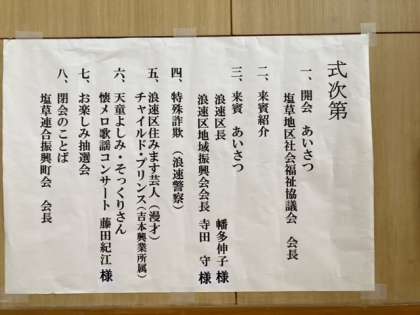 式次第
一、開会 あいさつ
塩草地区社会福祉協議会 会長
二、来賓紹介
三、来賓 あいさつ
浪速区長 幡多伸子様
浪速区地域振興会会長 寺田 守様
四、特殊詐欺（浪速警察）
五、浪速区住みます芸人（漫才）
チャイルド・プリンス（吉本興業所属）
六、天童よしみ・そっくりさん
懐メロ歌謡コンサート 藤田紀江 様
七、お楽しみ抽選会
八、閉会のことば
塩草連合振興町会 会長